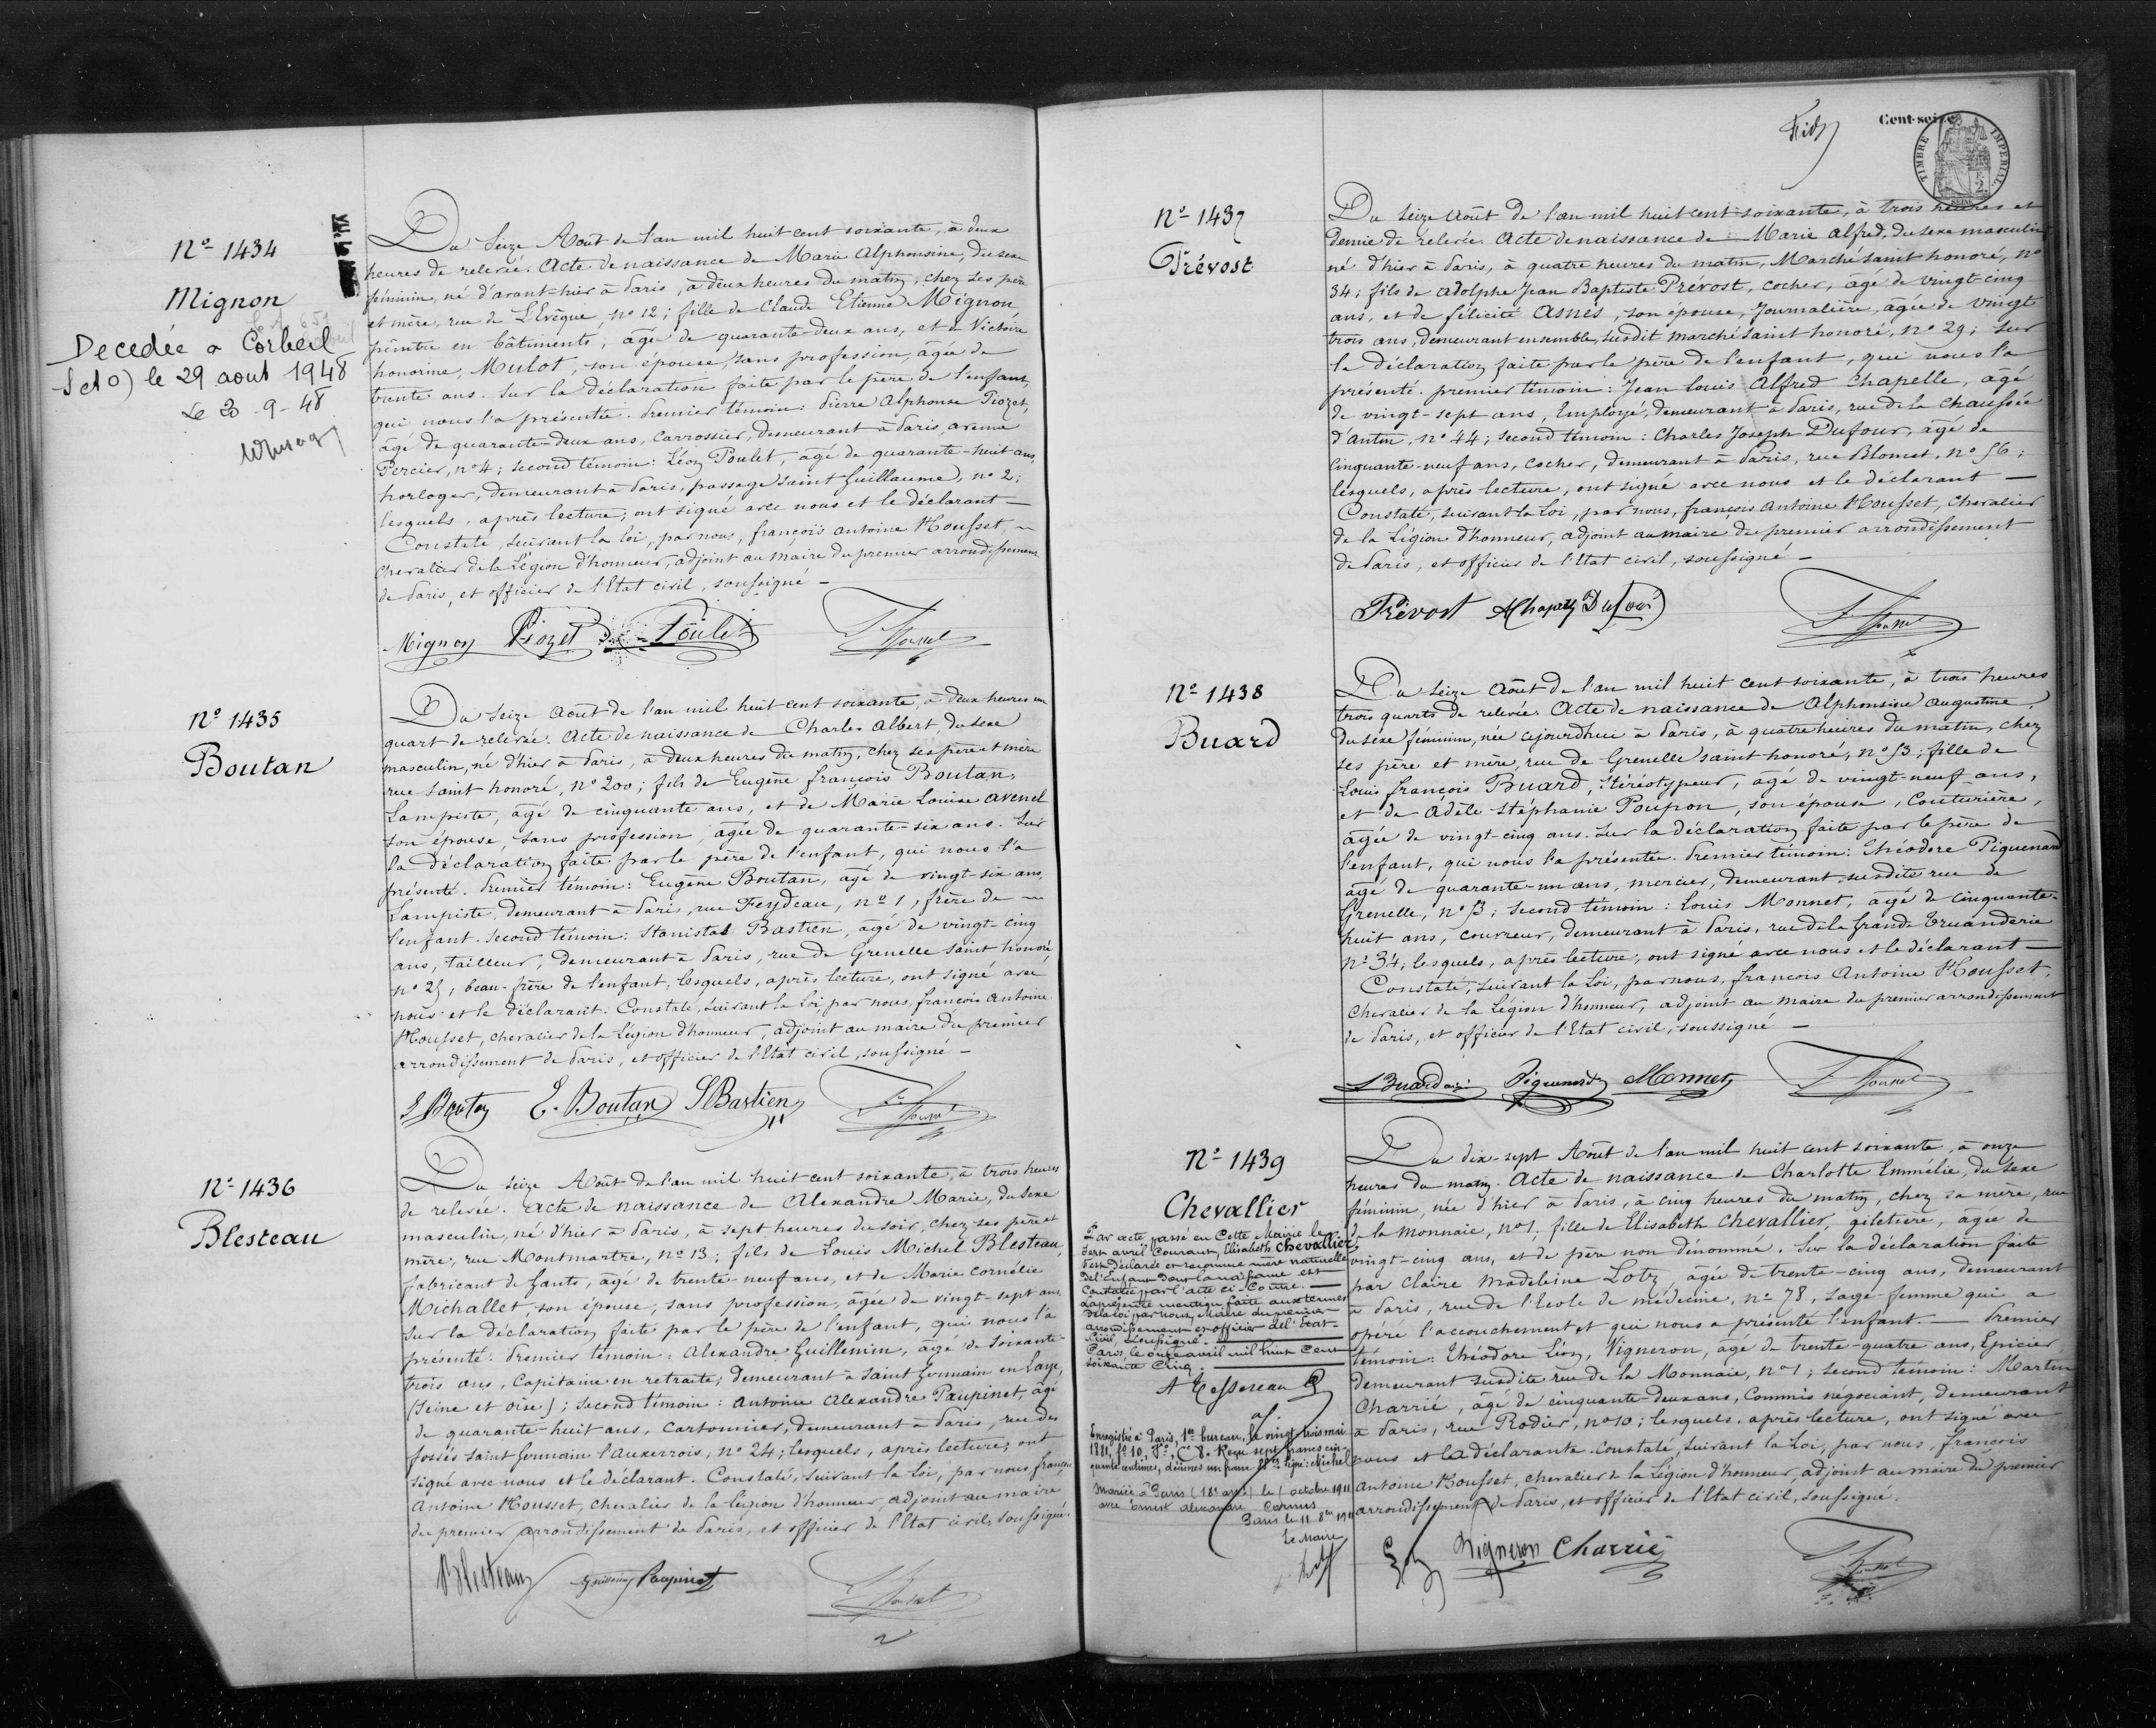 Nº 1434
Mignon
Decedée a Corbeil
(S et O) le 29 aout 1948
Le 3-9-48
Du Seize Aout de l'an mil huit cent soixante, à deux
heures de relevée. Acte de naissance de Marie Alphonsine, du sexe
féminin, né d'avant-hier à Paris, à deux heures du matin, chez ses père
et mère, rue de L'Evêque, nº 12; fille de Claude Etienne Mignon
peintre en bâtiments, âgé de quarante-deux ans, et de Victoire
honorine, Mulot, son épouse, sans profession, âgée de
trente ans. Sur la déclaration faite par le père de l'enfant,
qui nous l'a présentée. Premier témoin: Pierre Alphonse Piozet,
âgé de quarante-deux ans, Carrossier, demeurant à Paris, avenue
Percier, nº 4; second témoin: Léon Poulet, âgé de quarante-huit ans,
horloger, demeurant à Paris, passage Saint Guillaume, nº 2;
lesquels, après lecture, ont signé avec nous et le déclarant —
Constaté, suivant la loi, par nous, françois antoine Housset,
Chevalier de la Légion d'honneur, adjoint au maire du premier arrondissement
de Paris, et officier de l'Etat civil, soussigné —
Mignon Piozet Poulet F. Housset
Nº 1435
Boutan
Du Seize Août de l'an mil huit cent soixante, à deux heures un
quart de relevée. Acte de naissance de Charles Albert, du sexe
masculin, né d'hier à Paris, à deux heures du matin, chez ses père et mère
rue Saint honoré, nº 200; fils de Eugène françois Boutan,
Lampiste, âgé de cinquante ans, et de Marie Louise Avenel
son épouse, sans profession, âgée de quarante-six ans. Sur
la déclaration faite par le père de l'enfant, qui nous l'a
présenté. Premier témoin: Eugène Boutan, âgé de vingt-six ans,
Lampiste, demeurant à Paris, rue Feydeau, nº 1, frère de
l'enfant. Second témoin: Stanislas Bastien, âgé de vingt-cinq
ans, tailleur, demeurant à Paris, rue de Grenelle Saint honoré
nº 25, beau-frère de l'enfant; lesquels, après lecture, ont signé avec
nous et le déclarant. Constaté, suivant la Loi, par nous, françois Antoine
Housset, chevalier de la Légion d'honneur, adjoint au maire du premier
arrondissement de Paris, et officier de l'Etat civil, soussigné —
E. Boutan E. Boutan S Bastien F. Housset
Nº 1436
Blesteau
Du Seize Août de l'an mil huit cent soixante, à trois heures
de relevée. Acte de naissance de Alexandre Marie, du sexe
masculin, né d'hier à Paris, à sept heures du soir, chez ses père et
mère, rue Montmartre, nº 13; fils de Louis Michel Blesteau,
fabricant de Gants, âgé de trente-neuf ans, et de Marie Cornélie
Michallet, son épouse, sans profession, âgée de vingt-sept ans
Sur la déclaration faite par le père de l'enfant, qui nous l'a
présenté. Premier témoin: Alexandre Guillemin, âgé de soixante-
trois ans, Capitaine en retraite, demeurant à Saint Germain en Laye,
(Seine et Oise); second témoin: Antoine Alexandre Paupinet, âgé
de quarante-huit ans, Cartonnier, demeurant à Paris, rue des
fossés Saint Germain l'Auxerrois, nº 24; lesquels, après lecture, ont
signé avec nous et le déclarant. Constaté, suivant la loi, par nous françois
Antoine Housset, chevalier de la Légion d'honneur, adjoint au maire
du premier arrondissement de Paris, et officier de l'Etat civil, soussigné.
Blesteau Guillemin Paupinet F. Housset
Cent-seize
TIMBRE IMPERIAL
SEINE
Nº 1437
Prévost
Du Seize Août de l'an mil huit cent soixante, à trois heures et
demie de relevée. Acte de naissance de Marie Alfred, du sexe masculin
né d'hier à Paris, à quatre heures du matin, Marché Saint honoré, nº
34; fils de Adolphe Jean Baptiste Prévost, cocher, âgé de vingt-cinq
ans, et de félicité Asnès, son épouse, Journalière, âgée de vingt
trois ans, demeurant ensemble, susdit marché Saint honoré, nº 29; Sur
la déclaration faite par le père de l'enfant, qui nous l'a
présenté. premier témoin: Jean Louis Alfred Chapelle, âgé
de vingt-sept ans, Employé, demeurant à Paris, rue de la Chaussée
d'Antin, nº 44; second témoin: Charles Joseph Dufour, âgé de
cinquante-neuf ans, cocher, demeurant à Paris, rue Blomet, nº 56;
lesquels, après lecture, ont signé avec nous et le déclarant —
Constaté, suivant la Loi, par nous, françois Antoine Housset, Chevalier
de la Légion d'honneur, adjoint au maire du premier arrondissement
de Paris, et officier de l'Etat civil, soussigné —
Prévost AChapelle Dufour F. Housset
Nº 1438
Buard
Du Seize Août de l'an mil huit cent soixante, à trois heures
trois quarts de relevée. Acte de naissance de Alphonsine Augustine,
du sexe féminin, née cejourd'hui à Paris, à quatre heures du matin, chez
ses père et mère, rue de Grenelle Saint honoré, nº 53; fille de
Louis françois Buard, Stéréotypeur, âgé de vingt-neuf ans,
et de Adèle Stéphanie Poupon, son épouse, Couturière,
âgée de vingt-cinq ans. Sur la déclaration faite par le père de
l'enfant, qui nous l'a présentée. Premier témoin: Théodore Piquenard
âgé de quarante-un ans, mercier, demeurant susdite rue de
Grenelle, nº 13; second témoin: Louis Monnet, âgé de cinquante-
huit ans, couvreur, demeurant à Paris, rue de la Grande Truanderie
nº 34; lesquels, après lecture, ont signé avec nous et le déclarant —
Constaté, suivant la Loi, par nous, françois Antoine Housset,
Chevalier de la Légion d'honneur, adjoint au maire du premier arrondissement
de Paris, et officier de l'Etat civil, soussigné —
LBuard Piquenard Monnet F. Housset
Nº 1439
Chevallier
Par acte passé en Cette Mairie le
Sept avril Courant, Elisabeth Chevallier
s'est déclarée et reconnue mère naturelle
de l'Enfant dont la naissance est
Constatée par l'acte ci-Contre. —
La présente mention faite aux termes
de la loi par Nous, Maire du premier
arrondissement et officier de l'Etat-
Civil Soussigné. —
Paris, le onze avril mil huit Cent
soixante Cinq. —
A Tesserau
Enregistré à Paris, 1er bureau, le vingt trois mai
1881, fº 10, Vº, Cº 8. Reçu sept francs cin-
quante centimes, décimes un franc 88 c. Signé: Michel
Mariée à Paris (18e arrt) le octobre 1911
avec Ernest Alexandre Carmus
Paris le 11 8bre 1911
Le Maire
Du dix-sept Août de l'an mil huit cent soixante, à onze
heures du matin. Acte de naissance de Charlotte Emmélie, du sexe
féminin, née d'hier à Paris, à cinq heures du matin, chez sa mère, rue
de la Monnaie, nº 1; fille de Elisabeth Chevallier, giletière, âgée de
vingt-cinq ans, et de père non dénommé. Sur la déclaration faite
par Claire Madeleine Lotz, âgée de trente-cinq ans, demeurant
à Paris, rue de l'Ecole de médecine, nº 78, sage-femme qui a
opéré l'accouchement et qui nous a présenté l'enfant. — Premier
témoin: Théodore Léon, Vigneron, âgé de trente-quatre ans, Epicier,
demeurant susdite rue de la Monnaie, nº 1; second témoin: Martin
Charrié, âgé de cinquante-deux ans, Commis négociant, demeurant
à Paris, rue Rodier, nº 10; lesquels, après lecture, ont signé avec
nous et la déclarante. Constaté, suivant la Loi, par nous, françois
Antoine Housset, chevalier de la Légion d'honneur, adjoint au maire du premier
arrondissement de Paris, et officier de l'Etat civil, soussigné.
Lotz Vigneron Charrié F. Housset